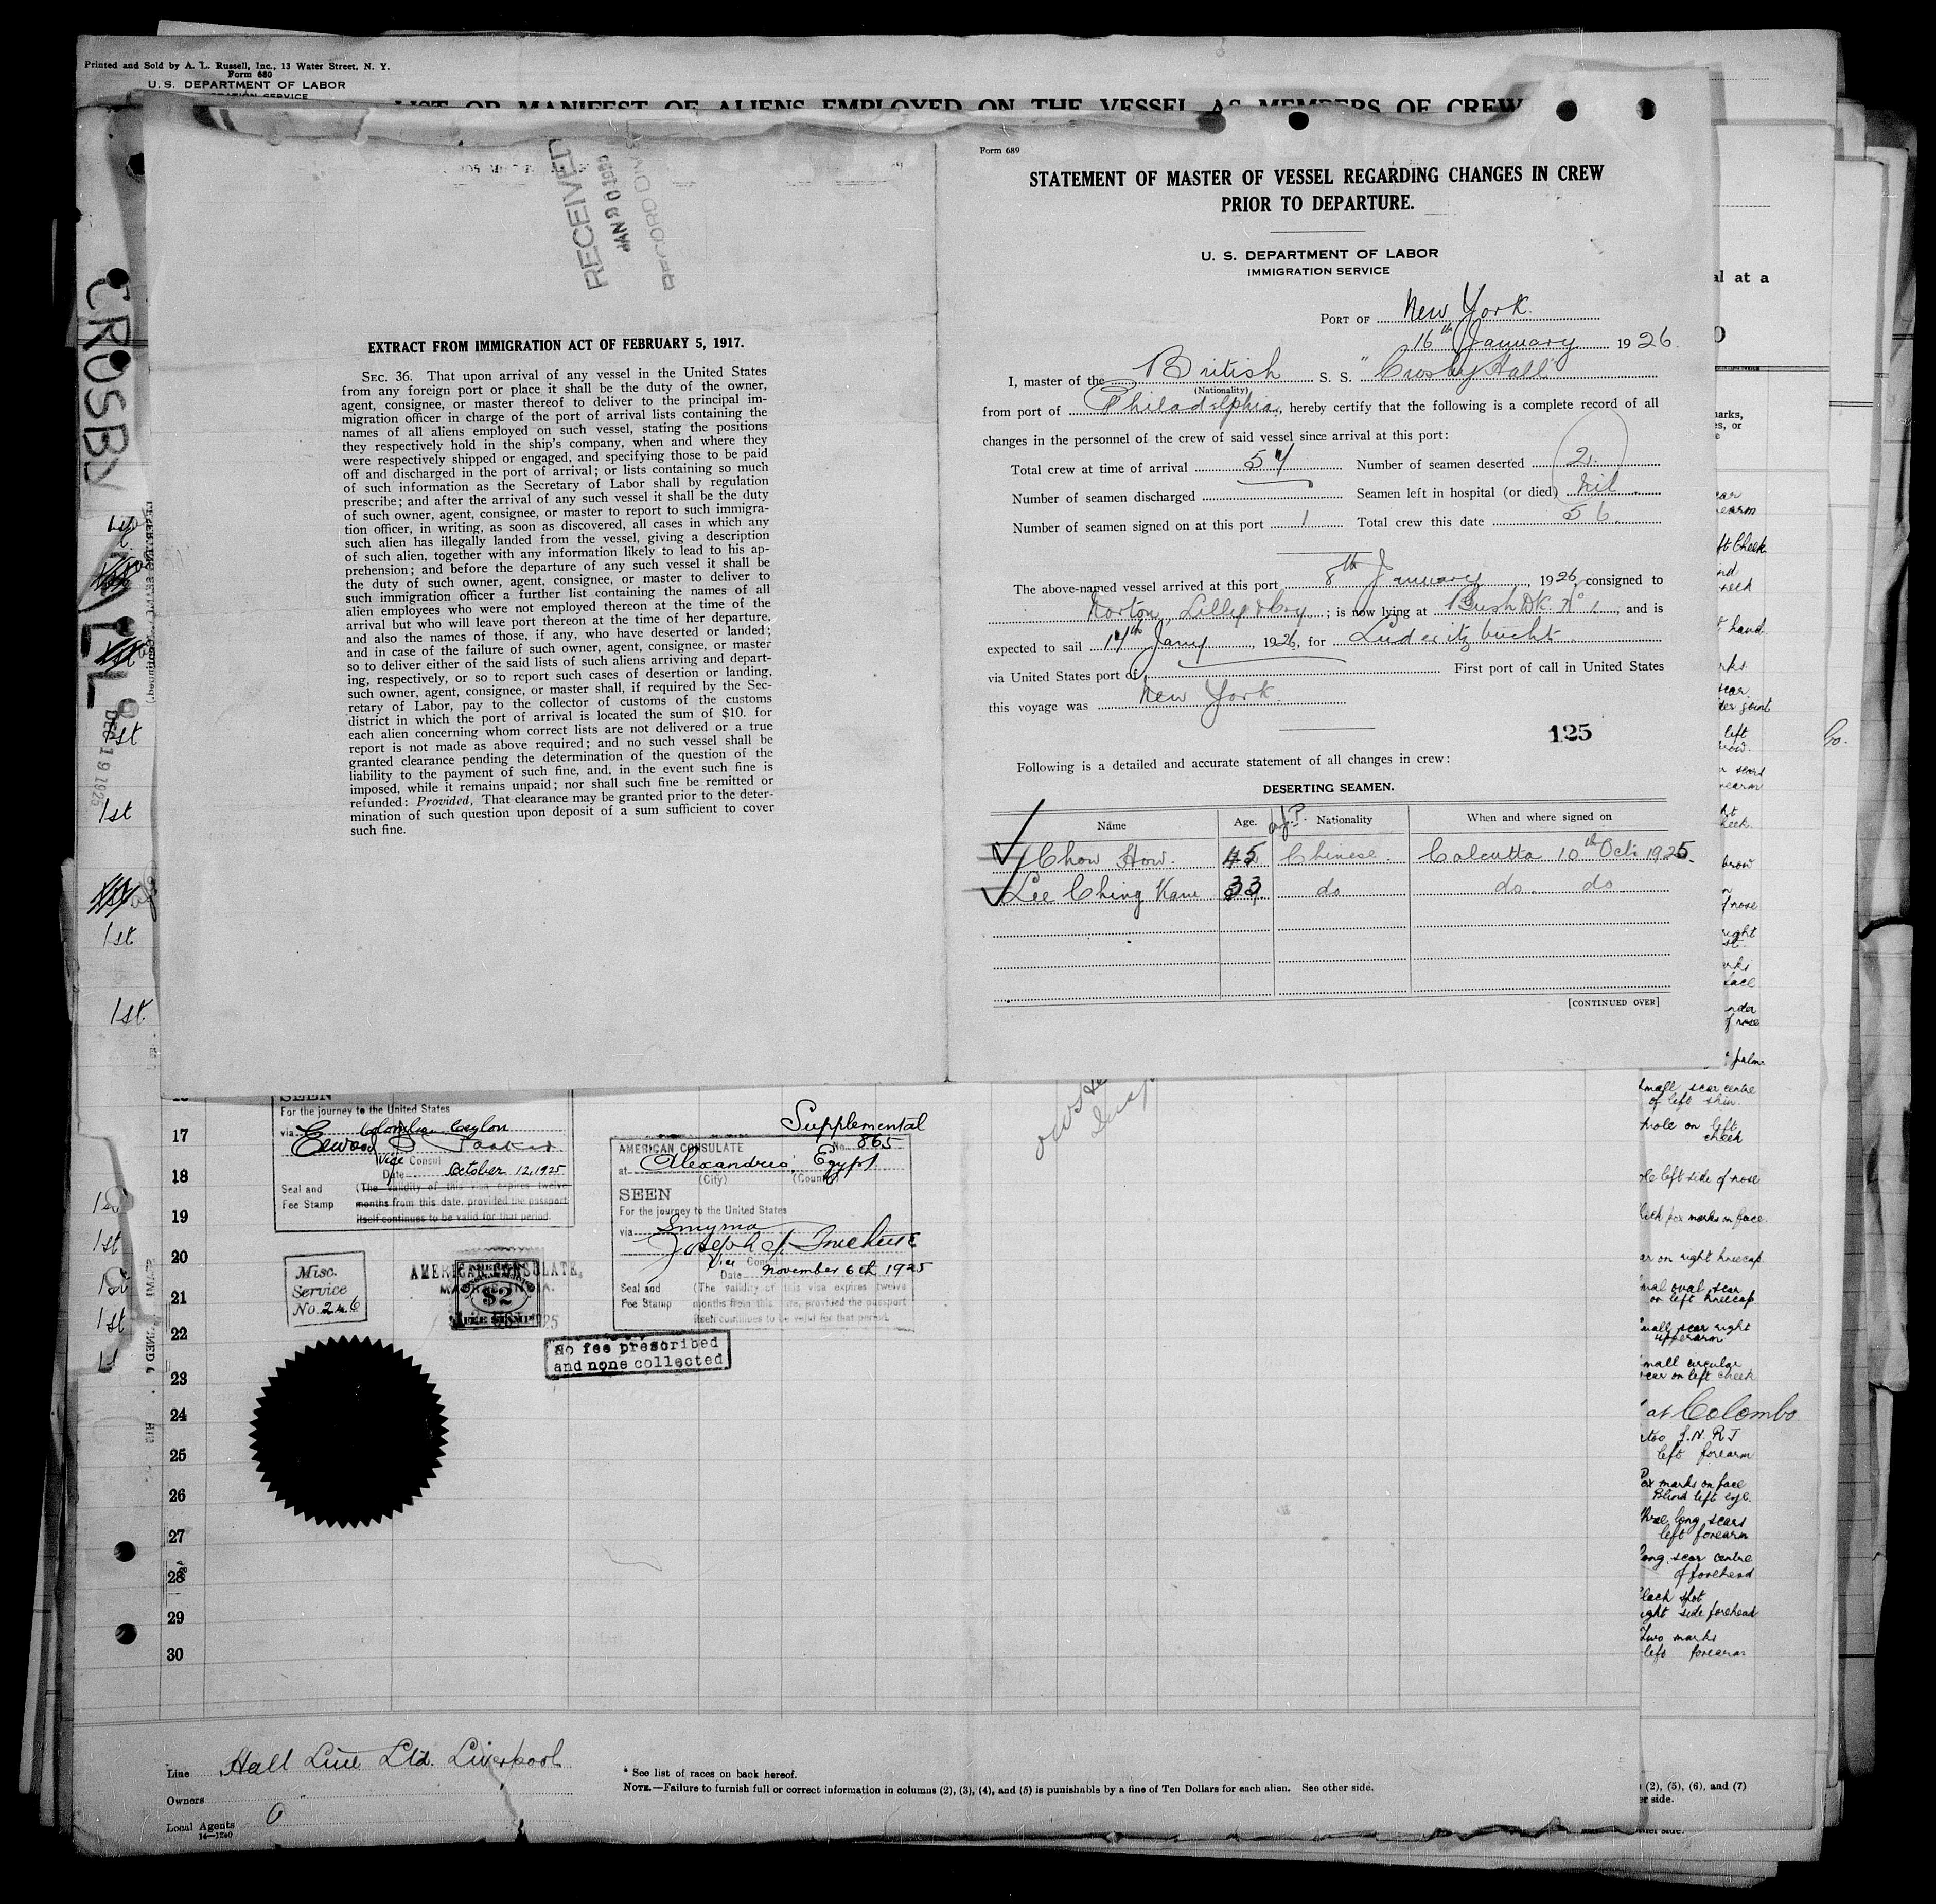 Printed and Sold by A. L. Russell, Inc., 13 Water Street, N. Y.
Form 680
U. S. DEPARTMENT OF LABOR
LIST OR MANIFEST OF ALIENS EMPLOYED ON THE VESSEL AS MEMBERS OF CREW
CROSBY
RECEIVED
JAN 20
RECORD DIV
EXTRACT FROM IMMIGRATION ACT OF FEBRUARY 5, 1917.
SEC. 36. That upon arrival of any vessel in the United States
from any foreign port or place it shall be the duty of the owner,
agent, consignee, or master thereof to deliver to the principal im-
migration officer in charge of the port of arrival lists containing the
names of all aliens employed on such vessel, stating the positions
they respectively hold in the ship's company, when and where they
were respectively shipped or engaged, and specifying those to be paid
off and discharged in the port of arrival; or lists containing so much
of such information as the Secretary of Labor shall by regulation
prescribe; and after the arrival of any such vessel it shall be the duty
of such owner, agent, consignee, or master to report to such immigra-
tion officer, in writing, as soon as discovered, all cases in which any
such alien has illegally landed from the vessel, giving a description
of such alien, together with any information likely to lead to his ap-
prehension; and before the departure of any such vessel it shall be
the duty of such owner, agent, consignee, or master to deliver to
such immigration officer a further list containing the names of all
alien employees who were not employed thereon at the time of the
arrival but who will leave port thereon at the time of her departure,
and also the names of those, if any, who have deserted or landed;
and in case of the failure of such owner, agent, consignee, or master
so to deliver either of the said lists of such aliens arriving and depart-
ing, respectively, or so to report such cases of desertion or landing,
such owner, agent, consignee, or master shall, if required by the Sec-
retary of Labor, pay to the collector of customs of the customs
district in which the port of arrival is located the sum of $10. for
each alien concerning whom correct lists are not delivered or a true
report is not made as above required; and no such vessel shall be
granted clearance pending the determination of the question of the
liability to the payment of such fine, and, in the event such fine is
imposed, while it remains unpaid; nor shall such fine be remitted or
refunded: Provided, That clearance may be granted prior to the deter-
mination of such question upon deposit of a sum sufficient to cover
such fine.
Form 689
STATEMENT OF MASTER OF VESSEL REGARDING CHANGES IN CREW
PRIOR TO DEPARTURE.
U. S. DEPARTMENT OF LABOR
IMMIGRATION SERVICE
PORT OF New York.
16th January 1926.
I, master of the British S. S. "Crosby Hall"
(Nationality)
from port of Philadelphia, hereby certify that the following is a complete record of all
changes in the personnel of the crew of said vessel since arrival at this port:
Total crew at time of arrival 57 Number of seamen deserted 2.
Number of seamen discharged Seamen left in hospital (or died) Nil
Number of seamen signed on at this port 1 Total crew this date 56.
The above-named vessel arrived at this port 8th January, 1926, consigned to
Norton, Lilly & Coy; is now lying at Bush Dk. No 1, and is
expected to sail 17th Jany, 1926, for Luderitzbucht
via United States port of First port of call in United States
this voyage was New York.
125
Following is a detailed and accurate statement of all changes in crew:
DESERTING SEAMEN.
Name Age. Nationality When and where signed on
Chow How. 45 Chinese. Calcutta 10th Oct. 1925.
Lee Ching Kane 33 do do. do
[CONTINUED OVER]
DEC 19 1925
1st
1st
1st
1st
SEEN
For the journey to the United States
via Colombo Ceylon
Vice Consul
Date October 12, 1925
Seal and (The validity of this visa expires twelve
Fee Stamp months from this date, provided the passport
itself continues to be valid for that period.
Misc.
Service
No. 246
AMERICAN CONSULATE,
MADRAS, INDIA.
$2
FEE STAMP
Supplemental
AMERICAN CONSULATE No. 865
at Alexandria, Egypt
(City) (Country)
SEEN
For the journey to the United States
via Smyrna
Vice Consul
Date November 6th, 1925
Seal and (The validity of this visa expires twelve
Fee Stamp months from this date, provided the passport
itself continues to be valid for that period.
No fee prescribed
and none collected
17
18
19
20
21
22
23
24
25
26
27
28
29
30
al at a
left
small scar centre
of left shin
mole on left
cheek
left side of nose
marks on face
on right kneecap
oval scar
on left kneecap
small scar right
upperarm
small circular
scar on left cheek
at Colombo
left forearm
Pox marks on face
Blind left eye.
three long scars
left forearm
long scar centre
of forehead
black spot
right side forehead
Two marks
left forearm
Line Hall Line Ltd. Liverpool
Owners
Local Agents
14—1240
* See list of races on back hereof.
NOTE.—Failure to furnish full or correct information in columns (2), (3), (4), and (5) is punishable by a fine of Ten Dollars for each alien. See other side.
(2), (5), (6), and (7)
er side.